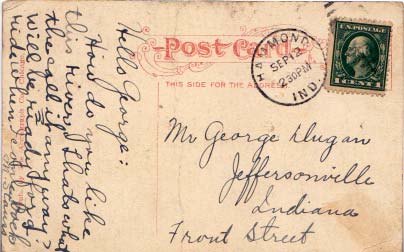 Post Card
THIS SIDE FOR THE ADDRESS
HAMMOND
SEP 12
230PM
IND.
1 CENT 1
Hello George:
How do you like
this river? Thats what
they call it anyway?
Will be ready for
ride when
Mr George Dugan
Jeffersonville
Indiana
Front Street